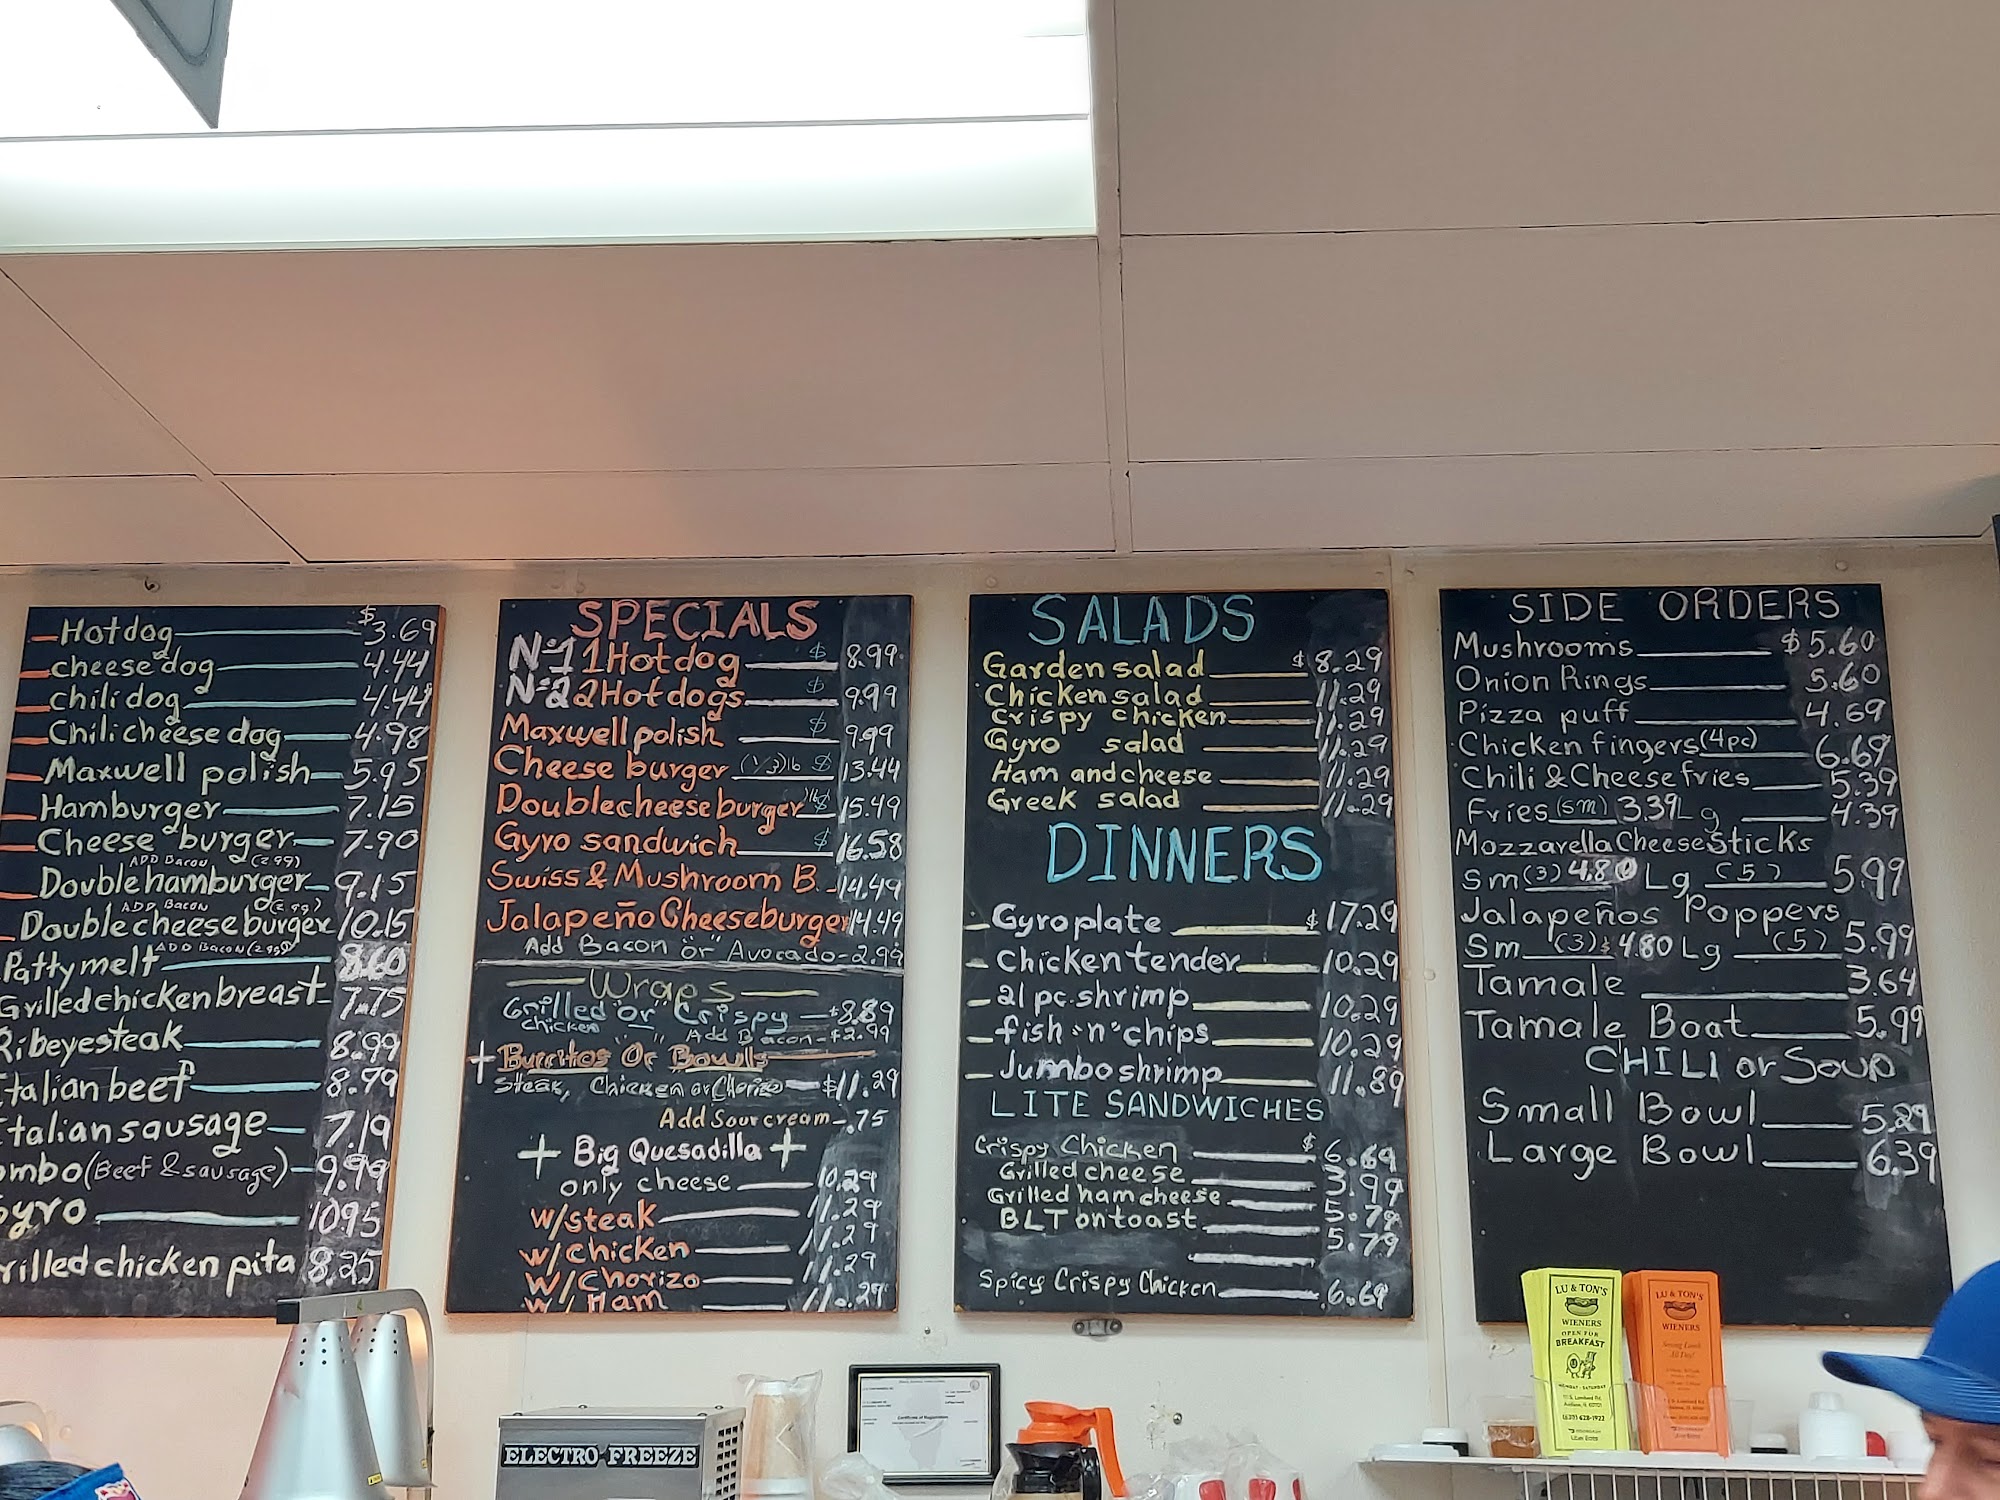 Hotdog $3.69
cheese dog 4.44
chili dog 4.44
Chili cheese dog 4.98
Maxwell polish 5.95
Hamburger 7.15
Cheese burger 7.90
ADD Bacon (2.99)
Double hamburger 9.15
ADD Bacon (2.99)
Double cheese burger 10.15
ADD Bacon (2.99)
Patty melt 8.60
Grilled chicken breast 7.75
Ribeye steak 8.99
Italian beef 8.79
Italian sausage 7.19
ombo (Beef & sausage) 9.99
Gyro 10.95
rilled chicken pita 8.25
SPECIALS
Nº1 1 Hot dog $ 8.99
Nº2 2 Hot dogs $ 9.99
Maxwell polish $ 9.99
Cheese burger (1/3) lb $ 13.44
Double cheese burger lb $ 15.49
Gyro sandwich $ 16.58
Swiss & Mushroom B. 14.49
Jalapeño Cheeseburger 14.49
Add Bacon "or" Avocado - 2.99
Wraps
Grilled "or" Crispy $8.89
chicken Add Bacon - $2.99
+ Burritos Or Bowlls
Steak, Chicken or Chorizo $11.29
Add Sour cream - .75
+ Big Quesadilla +
only cheese 10.29
w/steak 11.29
w/chicken 11.29
w/Chorizo 11.29
w/Ham 11.29
SALADS
Garden salad $8.29
Chicken salad 11.29
Crispy chicken 11.29
Gyro salad 11.29
Ham and cheese 11.29
Greek salad 11.29
DINNERS
Gyro plate $17.29
Chicken tender 10.29
21 pc. shrimp 10.29
fish "n" chips 10.29
Jumbo shrimp 11.89
LITE SANDWICHES
Crispy Chicken $6.69
Grilled cheese 3.99
Grilled ham cheese 5.79
BLT on toast 5.79
Spicy Crispy Chicken 6.69
SIDE ORDERS
Mushrooms $5.60
Onion Rings 5.60
Pizza puff 4.69
Chicken fingers (4pc) 6.69
Chili & Cheese fries 5.39
Fries (sm) 3.39 Lg 4.39
Mozzarella Cheese Sticks
Sm (3) 4.80 Lg (5) 5.99
Jalapeños Poppers
Sm (3) $4.80 Lg (5) 5.99
Tamale 3.64
Tamale Boat 5.99
CHILI or Soup
Small Bowl 5.29
Large Bowl 6.39
LU & TON'S
WIENERS
OPEN FOR
BREAKFAST
MONDAY - SATURDAY
111 S. Lombard Rd.
Addison, IL 60101
(630) 628-1922
LU & TON'S
WIENERS
Serving Lunch
All Day!
Certificate of Registration
ELECTRO FREEZE